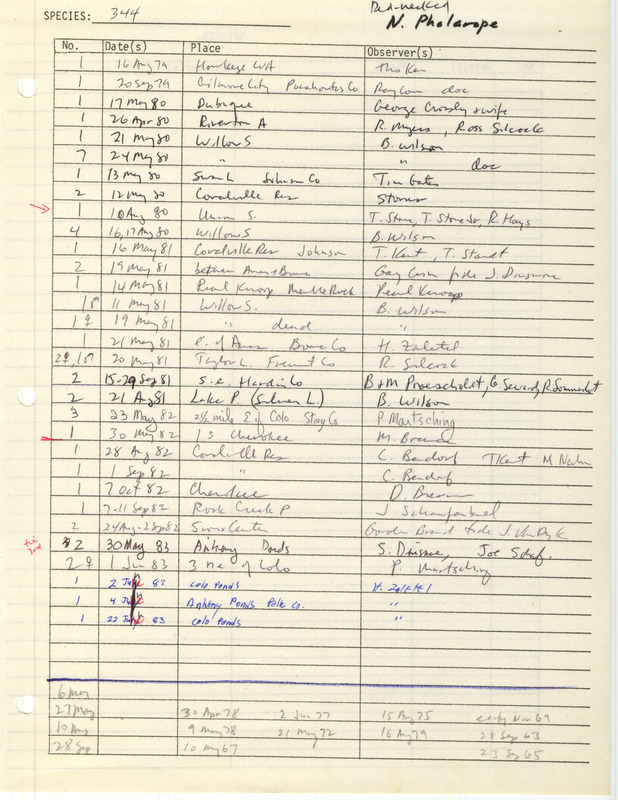 Red-necked
SPECIES: 344 N. Phalarope
No. Date(s) Place Observer(s)
1 16 Aug 79 Hawkeye WA
1 20 Sep 79 Gilmore City Pocahontas Co doc
1 17 May 80 Dubuque George Crossley & wife
1 26 Apr 80 Riverton A R. Myers, Ross Silcock
1 21 May 80 Willow S B. Wilson
7 24 May 80 " " doc
1 13 May 80 Swan L Johnson Co Tim
2 12 May 80 Coralville Res Stones
1 10 Aug 80 Union S. T. Stone, T. Stone Jr, R. Hays
4 16,17 Aug 80 Willow S B. Wilson
1 16 May 81 Coralville Res Johnson T. Kent, T. Staudt
2 19 May 81 between Ames & Boone Gay fide J. Dinsmore
1 14 May 81 Pearl Knoop Marble Rock Pearl Knoop
1♂ 11 May 81 Willow S. B. Wilson
1♀ 19 May 81 " dead "
1 21 May 81 e. of Ames Boone Co H. Zaletel
2♀,1♂ 20 May 81 Taylor L. Fremont Co R. Silcock
2 15-29 Sep 81 s.e. Hardin Co B & M Proescholdt, G. Seward, R. Sommerlot
2 21 Aug 81 Lake P (Silver L) B. Wilson
3 23 May 82 2 1/2 mile E. of Colo Story Co P Martsching
1 30 May 82 1 S Cherokee M. Brewer
1 28 Aug 82 Coralville Res C. Bendorf T Kent M Newlon
1 1 Sep 82 " C. Bendorf
1 7 Oct 82 Cherokee D. Brewer
1 7-11 Sep 82 Rock Creek P J
2 24 Aug-28 Sep 82 Sioux Center Gordon Brand fide J. Van Dyk
2 30 May 83 Anthony Ponds S. Dinsmore, Joe Schaf.
2♀ 1 Jun 83 3 ne of Colo P. Martsching
1 2 June 82 Colo Ponds H. Zaletel
1 4 June Anthony Ponds Polk Co. "
1 22 June 83 Colo Ponds "
6 May
27 May 30 Apr 78 2 Jun 77 15 Aug 75 early Nov 69
10 Aug 9 May 78 21 May 72 16 Aug 79 28 Sep 63
28 Sep 10 May 67 23 Sep 65